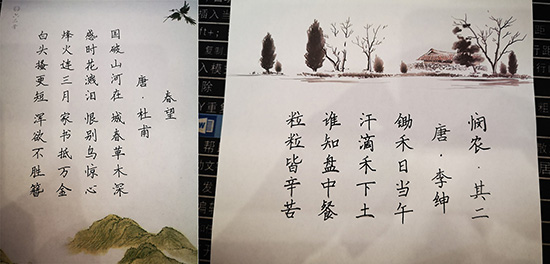 春望
唐·杜甫
国破山河在 城春草木深
感时花溅泪 恨别鸟惊心
烽火连三月 家书抵万金
白头搔更短 浑欲不胜簪
悯农·其二
唐·李绅
锄禾日当午
汗滴禾下土
谁知盘中餐
粒粒皆辛苦
插入
复制
入模
除
帮